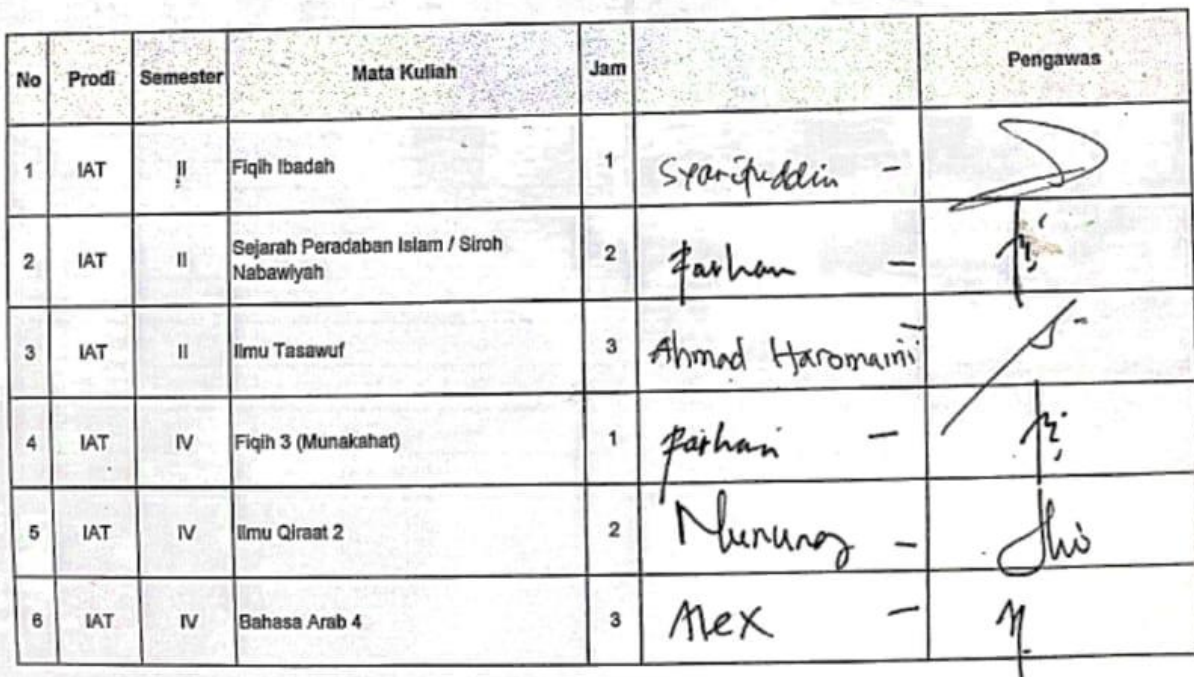 No Prodi Semester Mata Kuliah Jam Pengawas
1 IAT II Fiqih Ibadah 1 Syarifuddin -
2 IAT II Sejarah Peradaban Islam / Siroh
Nabawiyah 2 Farhan -
3 IAT II Ilmu Tasawuf 3 Ahmad Haromaini -
4 IAT IV Fiqih 3 (Munakahat) 1 Farhan -
5 IAT IV Ilmu Qiraat 2 2 Nunung -
6 IAT IV Bahasa Arab 4 3 Alex -